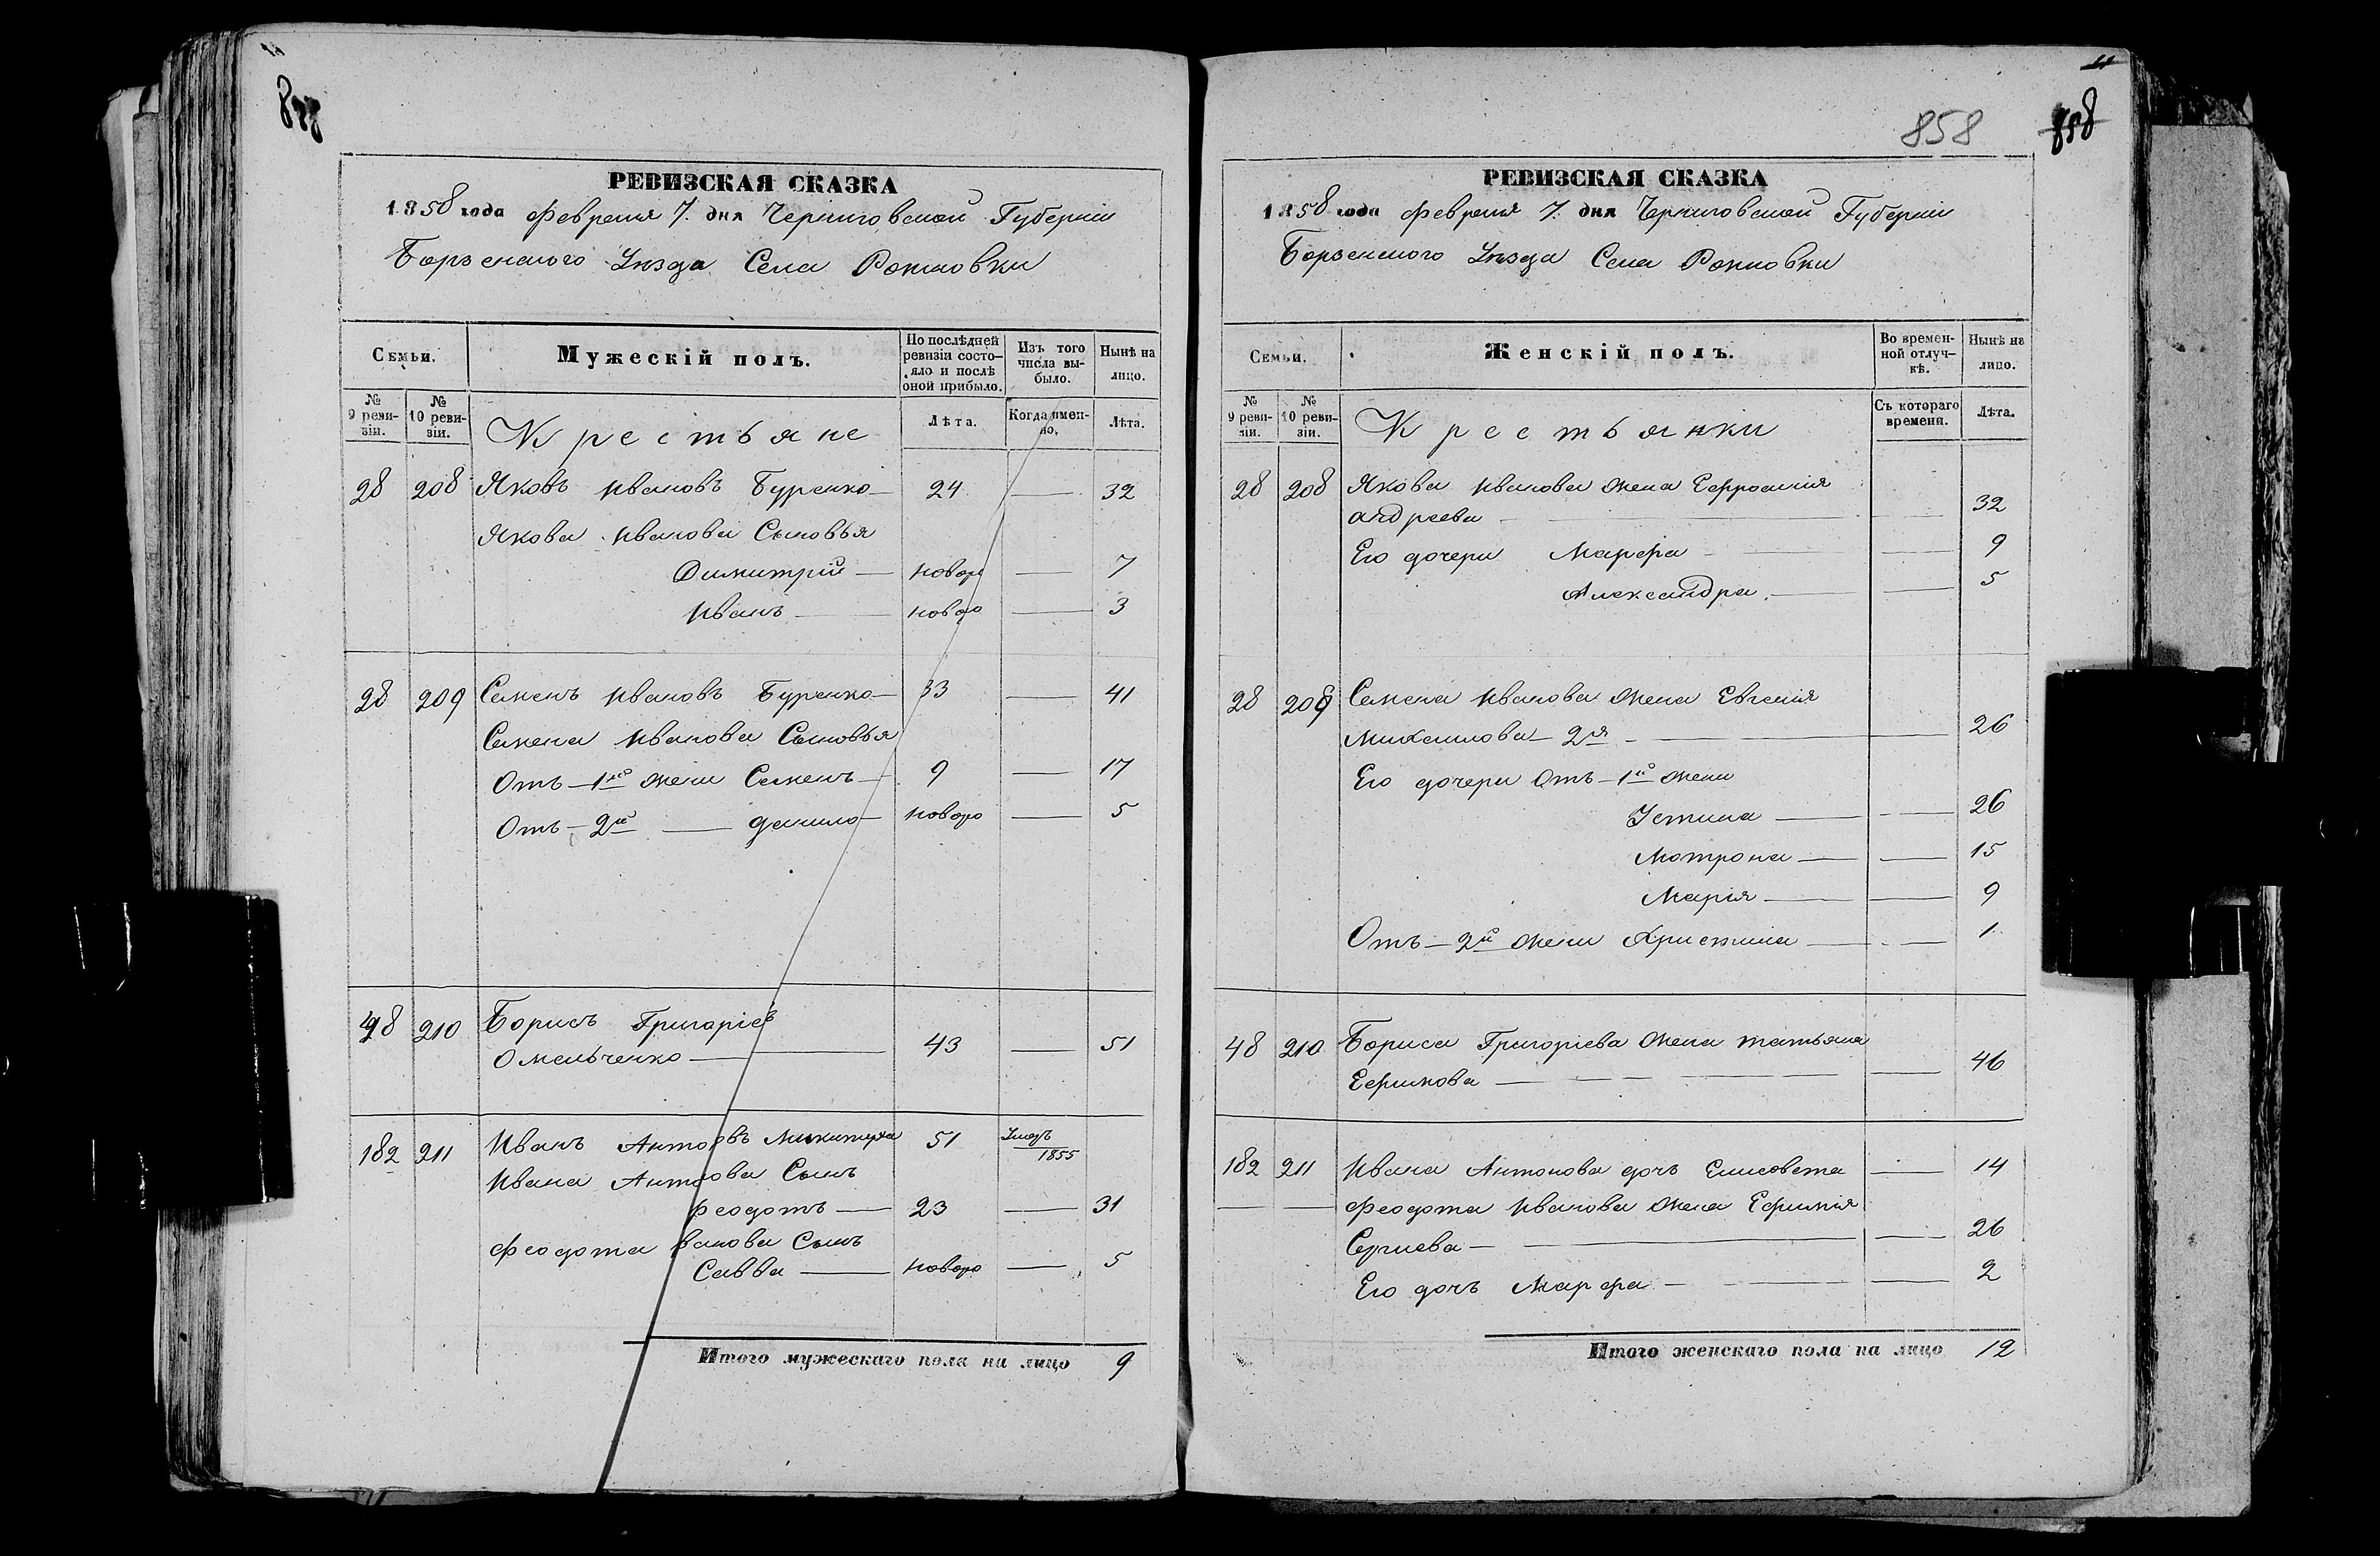 858
РЕВИЗСКАЯ СКАЗКА
1858 года февраля 7. дня Черниговской Губерніи
Борзенского Уѣзда Села
Семьи.
Мужескій полъ.
По послѣдней ревизіи состояло и послѣ оной прибыло.
Изъ того числа выбыло.
Нынѣ на лицо.
№ 9 ревизіи.
№ 10 ревизіи.
Крестьяне
Лѣта.
Когда именно.
Лѣта.
28 208 Яковъ Ивановъ Буренко 24 — 32
Якова Иванова Сыновья
Димитрій — новоро — 7
Иванъ — новоро — 3
28 209 Семенъ Ивановъ Буренко — 33 — 41
Семена Иванова Сыновья
Отъ — 1й жени Семенъ — 9 — 17
Отъ — 2й — данило — новоро — 5
48 210 Борисъ Григоріев
Омельченко — 43 — 51
182 211 Иванъ Антоновъ 51 Умеръ 1855
Ивана Антонова Сынъ
Феодотъ — 23 — 31
Феодота Иванова Сынъ
Савва — новоро — 5
Итого мужескаго пола на лицо 9
11
858 858
РЕВИЗСКАЯ СКАЗКА
1858 года февраля 7. дня Черниговской Губерніи
Борзенского Уѣзда Села
Семьи.
Женскій полъ.
Во временной отлучкѣ.
Нынѣ на лицо.
№ 9 ревизіи.
№ 10 ревизіи.
Крестьянки
Съ котораго времени.
Лѣта.
28 208 Якова Иванова жена Ефросинія
андреева — — 32
Его дочери Марфа — — 9
Александра — — 5
28 209 Семена Иванова жена Евгенія
Михаилова — 2я — — 26
Его дочери Отъ — 1й жени
Устина — — 26
Мотрона — — 15
Марія — — 9
Отъ — 2й жени Христина — — 1
48 210 Бориса Григоріева жена татьяна
Ефимова — — 46
182 211 Ивана Антонова дочь Елисовета — 14
— — Феодота Иванова жена Ефимія
Сергиева — — 26
Его дочь Марфа — — 2
Итого женскаго пола на лицо 12